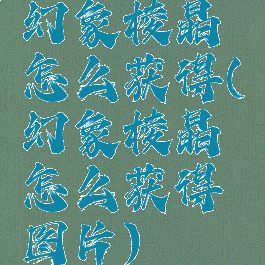 幻象棱晶
怎么获得(
幻象棱晶
怎么获得
图片)